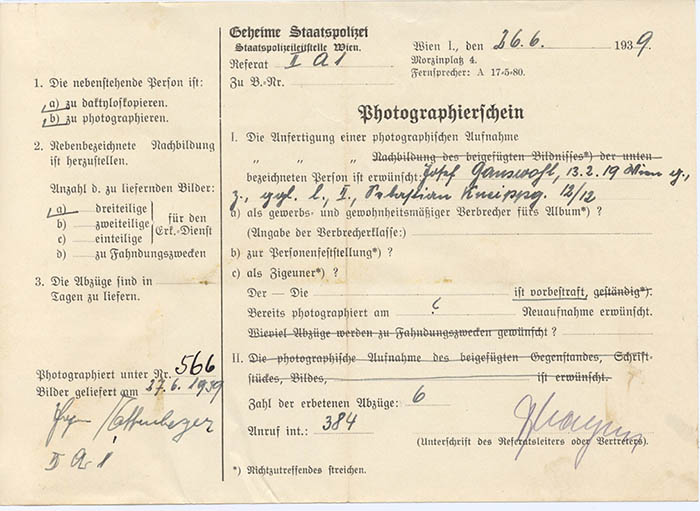 1. Die nebenstehende Person ist:
a) zu daktyloskopieren.
b) zu photographieren.
2. Nebenbezeichnete Nachbildung
ist herzustellen.
Anzahl d. zu liefernden Bilder:
a) dreiteilige
b) zweiteilige
c) einteilige
für den
Erk.-Dienst
d) zu Fahndungszwecken
3. Die Abzüge sind in
Tagen zu liefern.
Photographiert unter Nr. 566
Bilder geliefert am 27.6.1939
II A 1
Geheime Staatspolizei
Staatspolizeileitstelle Wien.
Referat II A 1
Zu B.-Nr.
Wien I., den 26.6. 1939.
Morzinplatz 4.
Fernsprecher: A 17-5-80.
Photographierschein
I. Die Anfertigung einer photographischen Aufnahme
„ „ „ Nachbildung des beigefügten Bildnisses*) der unten
bezeichneten Person ist erwünscht: Josef 13.2.19 Wien
z., ggl. l., II., Sebastian Kneippg. 12/12
a) als gewerbs- und gewohnheitsmäßiger Verbrecher fürs Album*) ?
(Angabe der Verbrecherklasse:)
b) zur Personenfeststellung*) ?
c) als Zigeuner*) ?
Der — Die ist vorbestraft, geständig*).
Bereits photographiert am ? Neuaufnahme erwünscht.
Wieviel Abzüge werden zu Fahndungszwecken gewünscht ?
II. Die photographische Aufnahme des beigefügten Gegenstandes, Schrift-
stückes, Bildes, ist erwünscht.
Zahl der erbetenen Abzüge: 6
Anruf int.: 384
(Unterschrift des Referatsleiters oder Vertreters).
*) Nichtzutreffendes streichen.